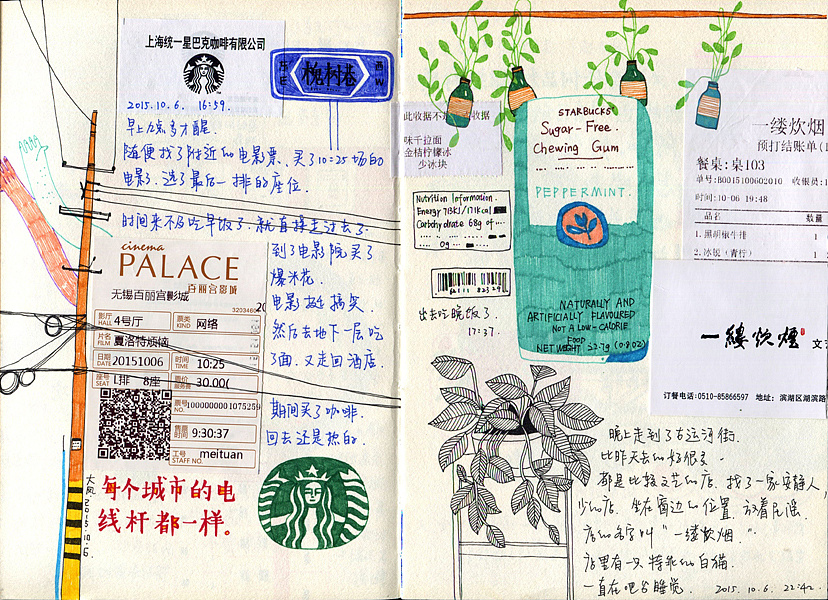 上海统一星巴克咖啡有限公司
东
E
槐树巷
西
W
2015.10.6. 16:59.
早上九点多才醒.
随便找了附近的电影票、买了10:25场的
电影,选了最后一排的座位.
时间来不及吃早饭了.就直接走过去了.
cinema
PALACE
百丽宫影城
无锡百丽宫影城
影厅
HALL
4号厅
票类
KIND
网络
片名
FILM
夏洛特烦恼
日期
DATE
20151006
时间
TIME
10:25
座号
SEAT
1排 8座
票价
30.00(
票号
NO.
1000000001075259
售票
时间
9:30:37
工号
STAFF NO.
meituan
到了电影院买了
爆米花.
电影挺搞笑.
然后去地下一层吃
了面.又走回酒店.
期间买了咖啡.
回去还是热的.
每个城市的电
线杆都一样。
大风 2015.10.6.
此收据不
收据
味千拉面
金桔柠檬冰
少冰块
STARBUCKS
Sugar-Free.
Chewing Gum
PEPPERMINT.
NATURALLY AND
ARTIFICIALLY FLAVOURED
NOT A LOW-CALORIE
FOOD
NET WEIGHT 22.7g (0.8 OZ)
Nutrition Information.
Energy 718KJ/171kcal
Carbohydrate 68g of
0g
出去吃晚饭了.
17:37.
一缕炊烟
预打结账单(
餐桌:桌103
单号:B0015100602010 收银员:1
时间:10-06 19:48
品名 数量
1.黑胡椒牛排 1
2.冰锐(青柠) 1
一缕炊烟
文
订餐电话:0510-85866597 地址: 滨湖区湖滨路
晚上走到了古运河街.
比昨天去的好很多.
都是比较文艺的店.找了一家安静人
少的店.坐在窗边的位置.放着民谣.
店的名字叫“一缕炊烟.”
店里有一只特乖的白猫.
一直在吧台睡觉. 2015.10.6. 22:42.